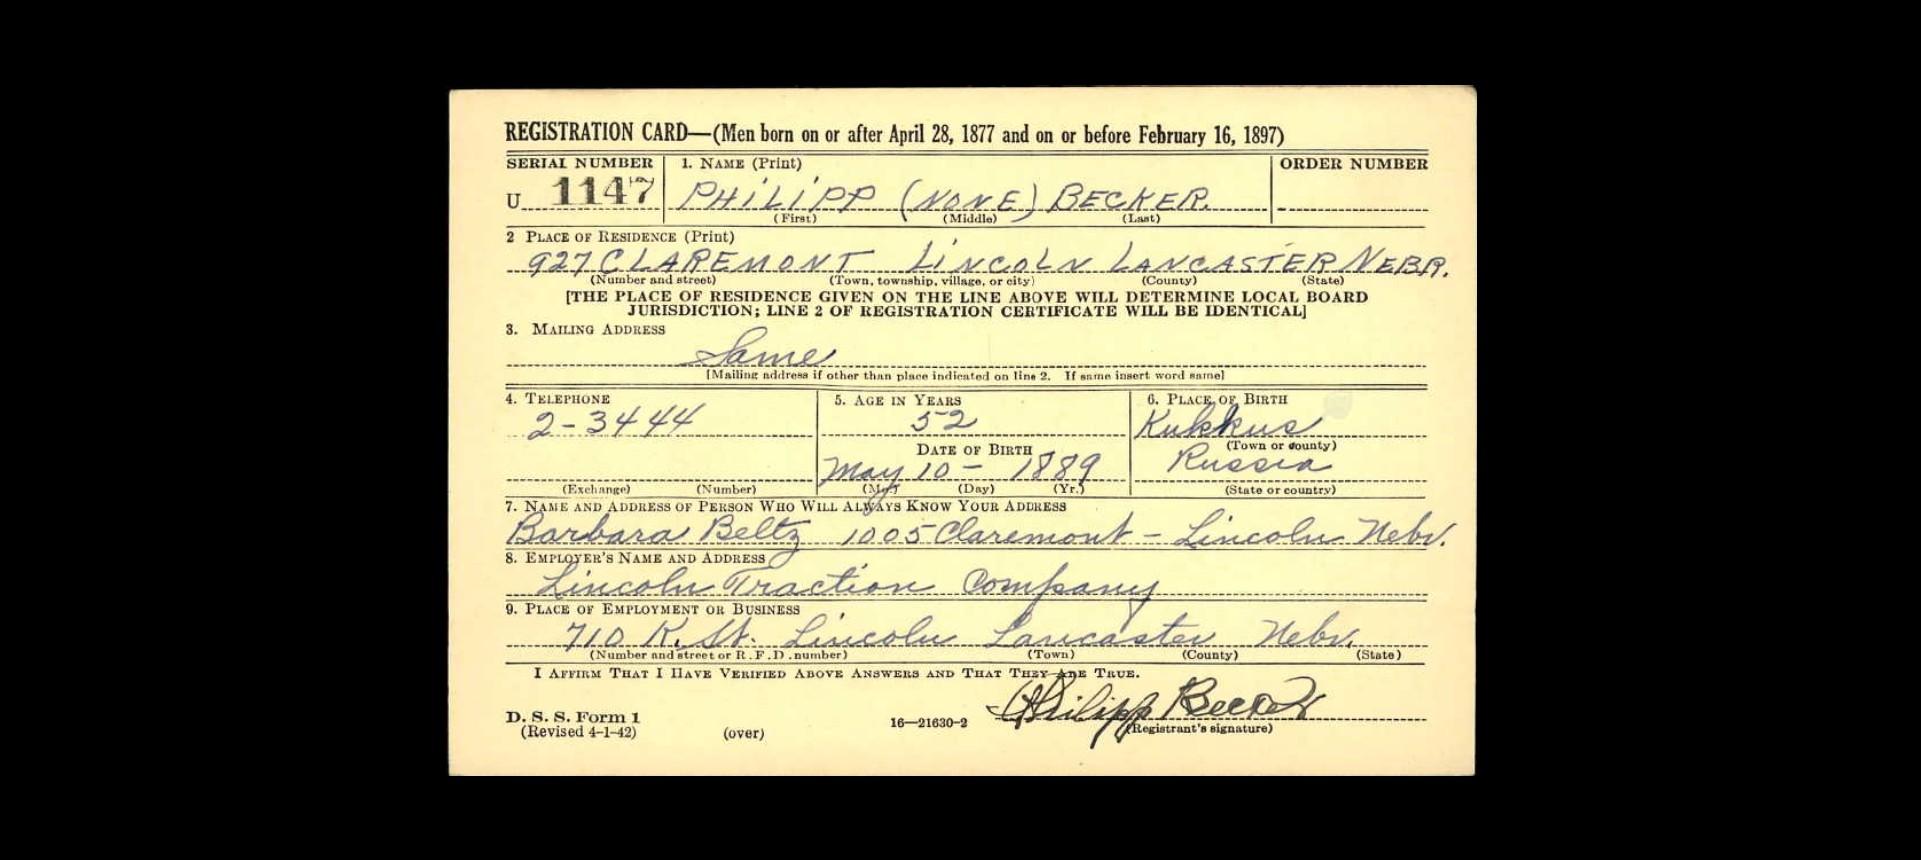 REGISTRATION CARD—(Men born on or after April 28, 1877 and on or before February 16, 1897)
SERIAL NUMBER 1. NAME (Print) ORDER NUMBER
U 1147 PHILIPP (NONE) BECKER
(First) (Middle) (Last)
2 PLACE OF RESIDENCE (Print)
927 CLAREMONT LINCOLN LANCASTER NEBR.
(Number and street) (Town, township, village, or city) (County) (State)
[THE PLACE OF RESIDENCE GIVEN ON THE LINE ABOVE WILL DETERMINE LOCAL BOARD
JURISDICTION; LINE 2 OF REGISTRATION CERTIFICATE WILL BE IDENTICAL]
3. MAILING ADDRESS
Same
[Mailing address if other than place indicated on line 2. If same insert word same]
4. TELEPHONE 5. AGE IN YEARS 6. PLACE OF BIRTH
2-3444 52 Kukkus
DATE OF BIRTH (Town or county)
May 10 - 1889 Russia
(Exchange) (Number) (Mo.) (Day) (Yr.) (State or country)
7. NAME AND ADDRESS OF PERSON WHO WILL ALWAYS KNOW YOUR ADDRESS
Barbara Beltz 1005 Claremont - Lincoln Nebr.
8. EMPLOYER'S NAME AND ADDRESS
Lincoln Traction Company
9. PLACE OF EMPLOYMENT OR BUSINESS
710 K. St. Lincoln Lancaster Nebr.
(Number and street or R. F. D. number) (Town) (County) (State)
I AFFIRM THAT I HAVE VERIFIED ABOVE ANSWERS AND THAT THEY ARE TRUE.
Philipp Becker
D. S. S. Form 1 16—21630-2 (Registrant's signature)
(Revised 4-1-42) (over)